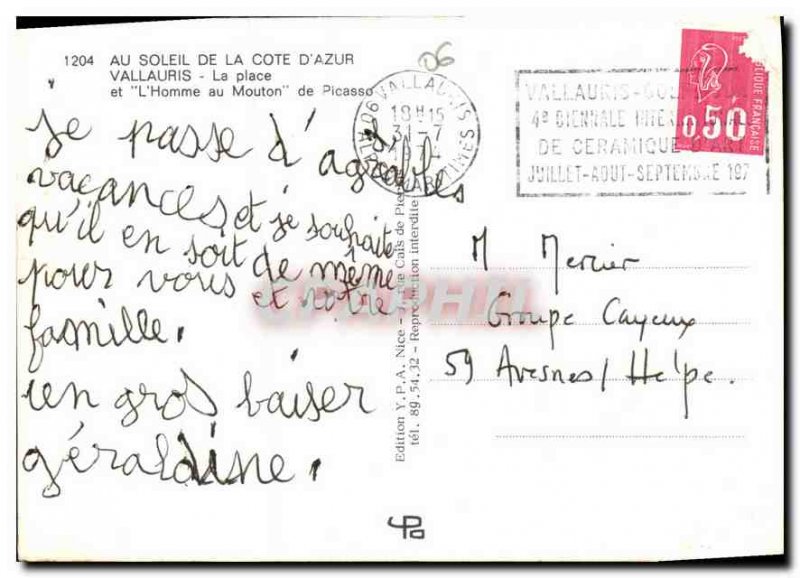 1204 AU SOLEIL DE LA COTE D'AZUR
VALLAURIS - La place
et "L'Homme au Mouton" de Picasso
06
06 VALLAURIS
18H15
31-7
ALPES MARITIMES
VALLAURIS-
4e BIENNALE
DE CERAMIQUE D'ART
JUILLET-AOUT-SEPTEMBRE 197
0,50
REPUBLIQUE FRANÇAISE
Je passe d'agréables
vacances et je souhaite
qu'il en soit de même
pour vous et votre
famille.
un gros baiser
géraldine.
Edition Y.P.A. Nice - rue Caïs de
tél. 89.54.32 - Reproduction interdite
M Mercier
Groupe Cayeux
59 Avesnes/Helpe.